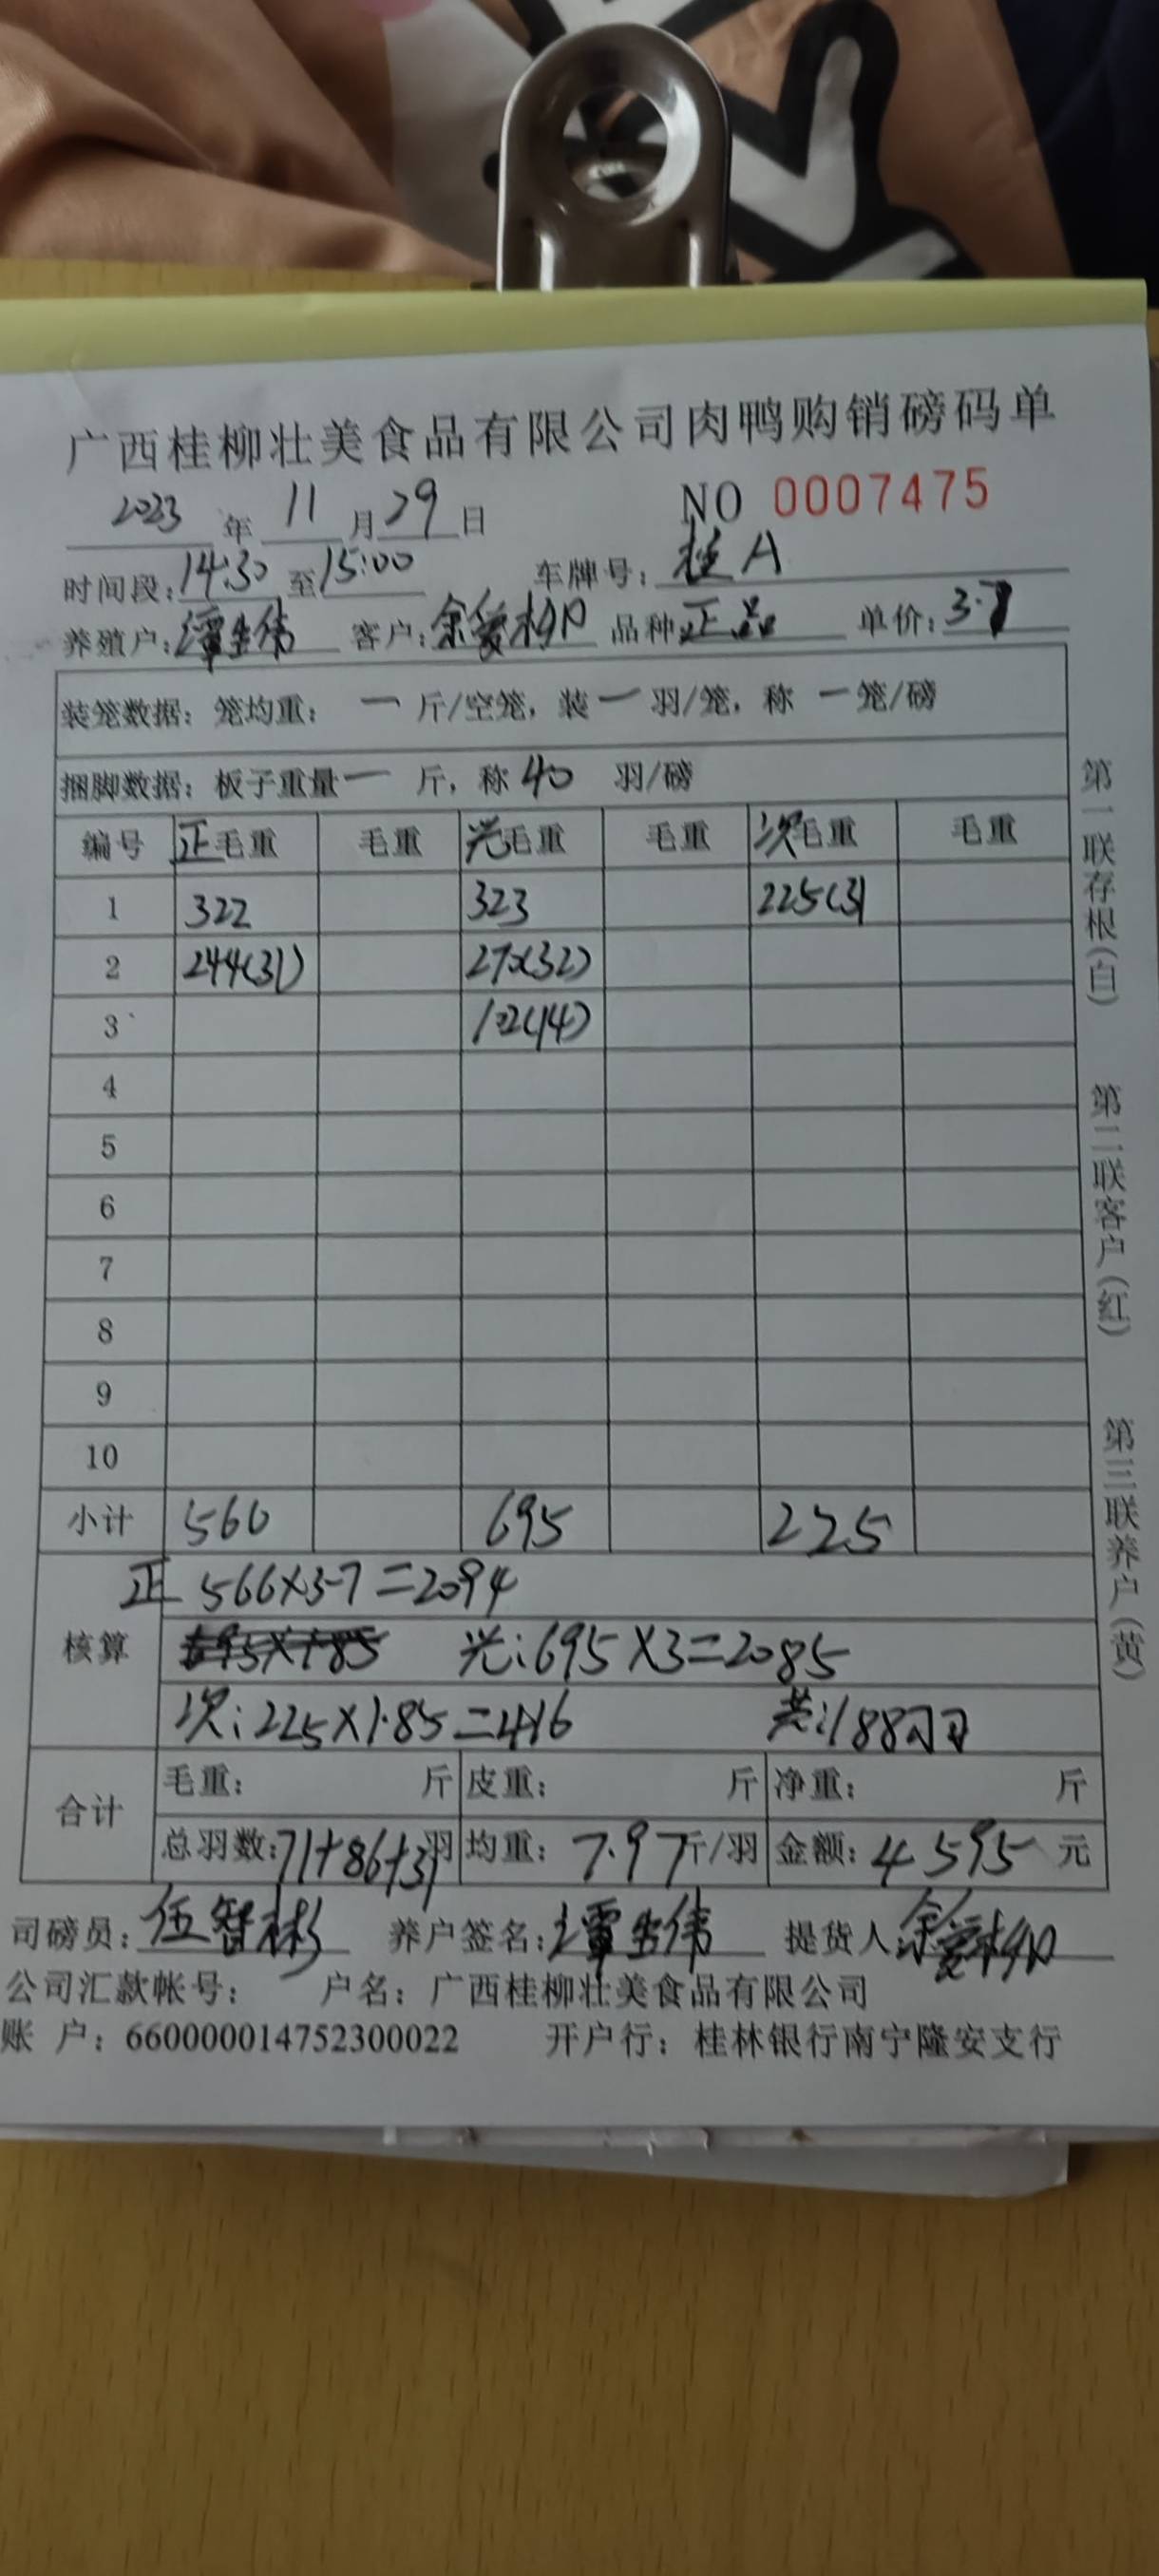 广西桂柳壮美食品有限公司肉鸭购销磅码单
2023 年 11 月 29 日 NO 0007475
时间段: 14:30 至 15:00 车牌号: 桂A
养殖户: 谭生伟 客户: 余爱 品种 正品 单价: 3.7
装笼数据: 笼均重: 一 斤/空笼, 装 一 羽/笼, 称 一 笼/磅
捆脚数据: 板子重量 一 斤, 称 40 羽/磅
编号 正毛重 毛重 光毛重 毛重 次毛重 毛重
1 322 323 225(31
2 244(31) 270(32)
3 102(14)
4
5
6
7
8
9
10
小计 566 695 225
正 566×3.7=2094
核算 光:695×3=2085
次:225×1.85=416 共:188羽
合计 毛重: 斤 皮重: 斤 净重: 斤
总羽数:71+86+31羽 均重: 7.9斤/羽 金额: 4595 元
司磅员: 伍智彬 养户签名: 谭生伟 提货人 余爱
公司汇款帐号: 户名: 广西桂柳壮美食品有限公司
账 户: 660000014752300022 开户行: 桂林银行南宁隆安支行
第一联存根(白) 第二联客户(红) 第三联养户(黄)